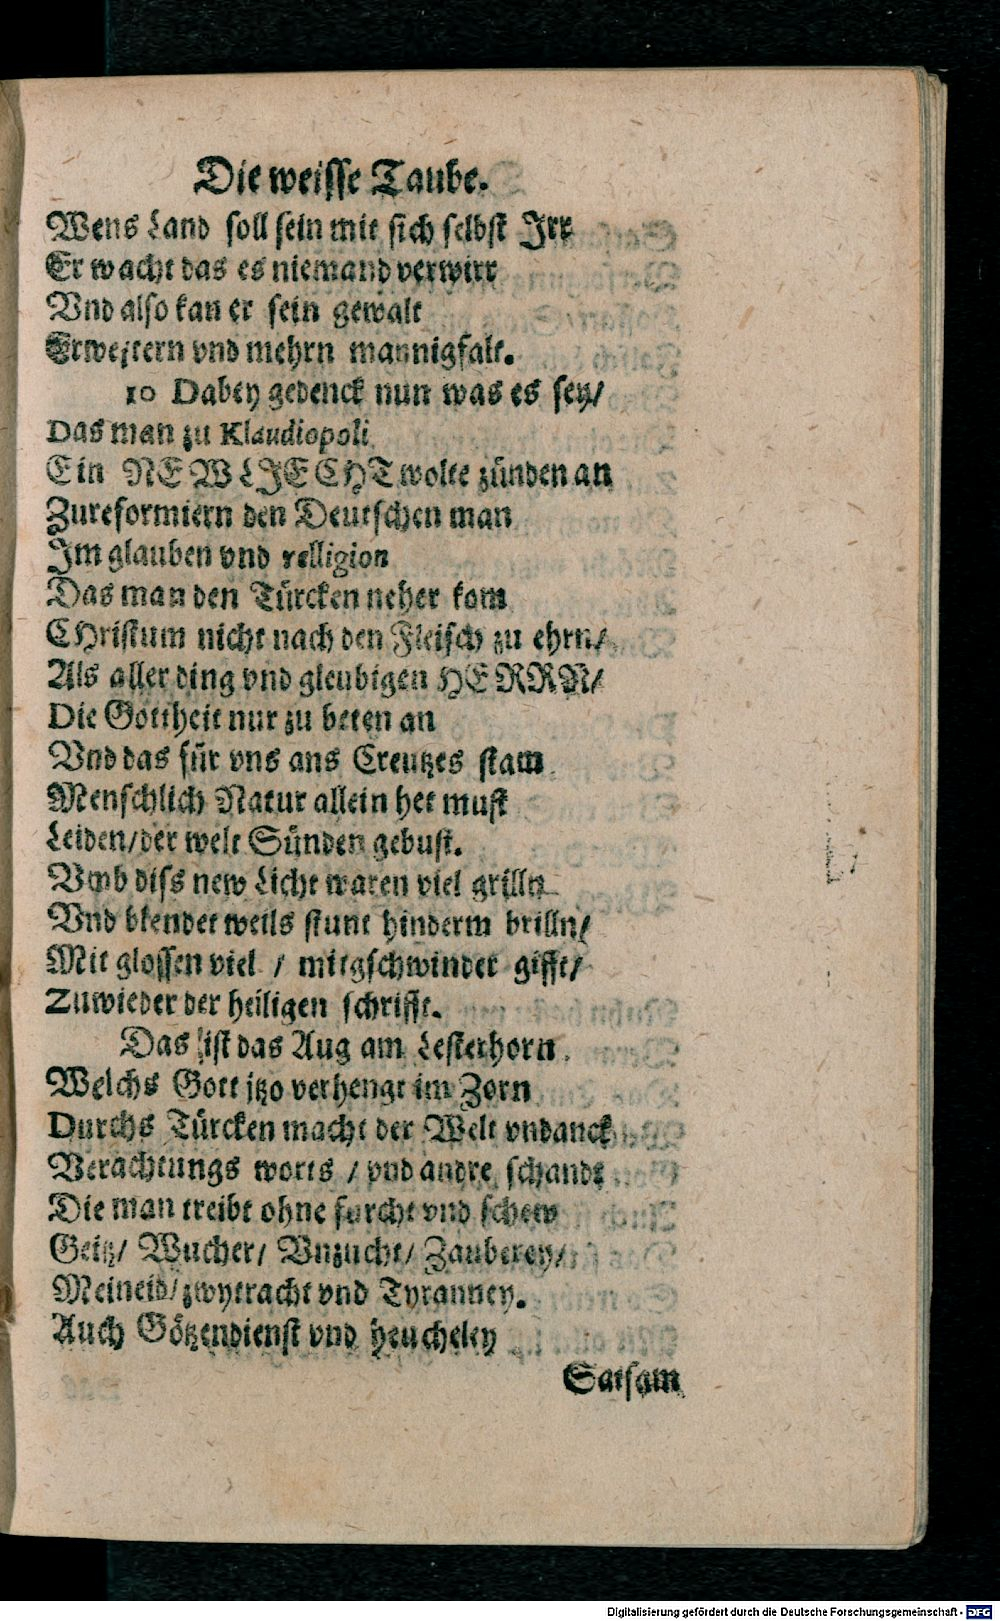 Die weisse Taube.
Wens Land soll sein mit sich selbst Irr
Er wacht das es niemand verwirr
Vnd also kan er sein gewalt
Erweitern vnd mehrn mannigfalt.
10 Dabey gedenck nun was es sey/
Das man zu Klaudiopoli
Ein NEW LJECHT wolte zünden an
Zureformiern den Deutschen man
Jm glauben vnd relligion
Das man den Türcken neher kom
CHristum nicht nach den Fleisch zu ehrn/
Als aller ding vnd gleubigen HERRN/
Die Gottheit nur zu beten an
Vnd das für vns ans Creutzes stam
Menschlich Natur allein het must
Leiden/der welt Sünden gebust.
Vmb diss new Licht waren viel grilln
Vnd blendet weils stunt hinderm brilln/
Mit glossen viel / mitgschwinder gifft/
Zuwieder der heiligen schrifft.
Das ist das Aug am Lesterhorn.
Welchs Gott jtzo verhengt im Zorn
Durchs Türcken macht der Welt vndanck
Verachtungs worts / vnd andre schandt
Die man treibt ohne furcht vnd schew
Geitz/ Wucher/ Vnzucht/ Zauberey/
Meineid/zwytracht vnd Tyranney.
Auch Götzendienst vnd heucheley
Satsam
Digitalisierung gefördert durch die Deutsche Forschungsgemeinschaft - DFG